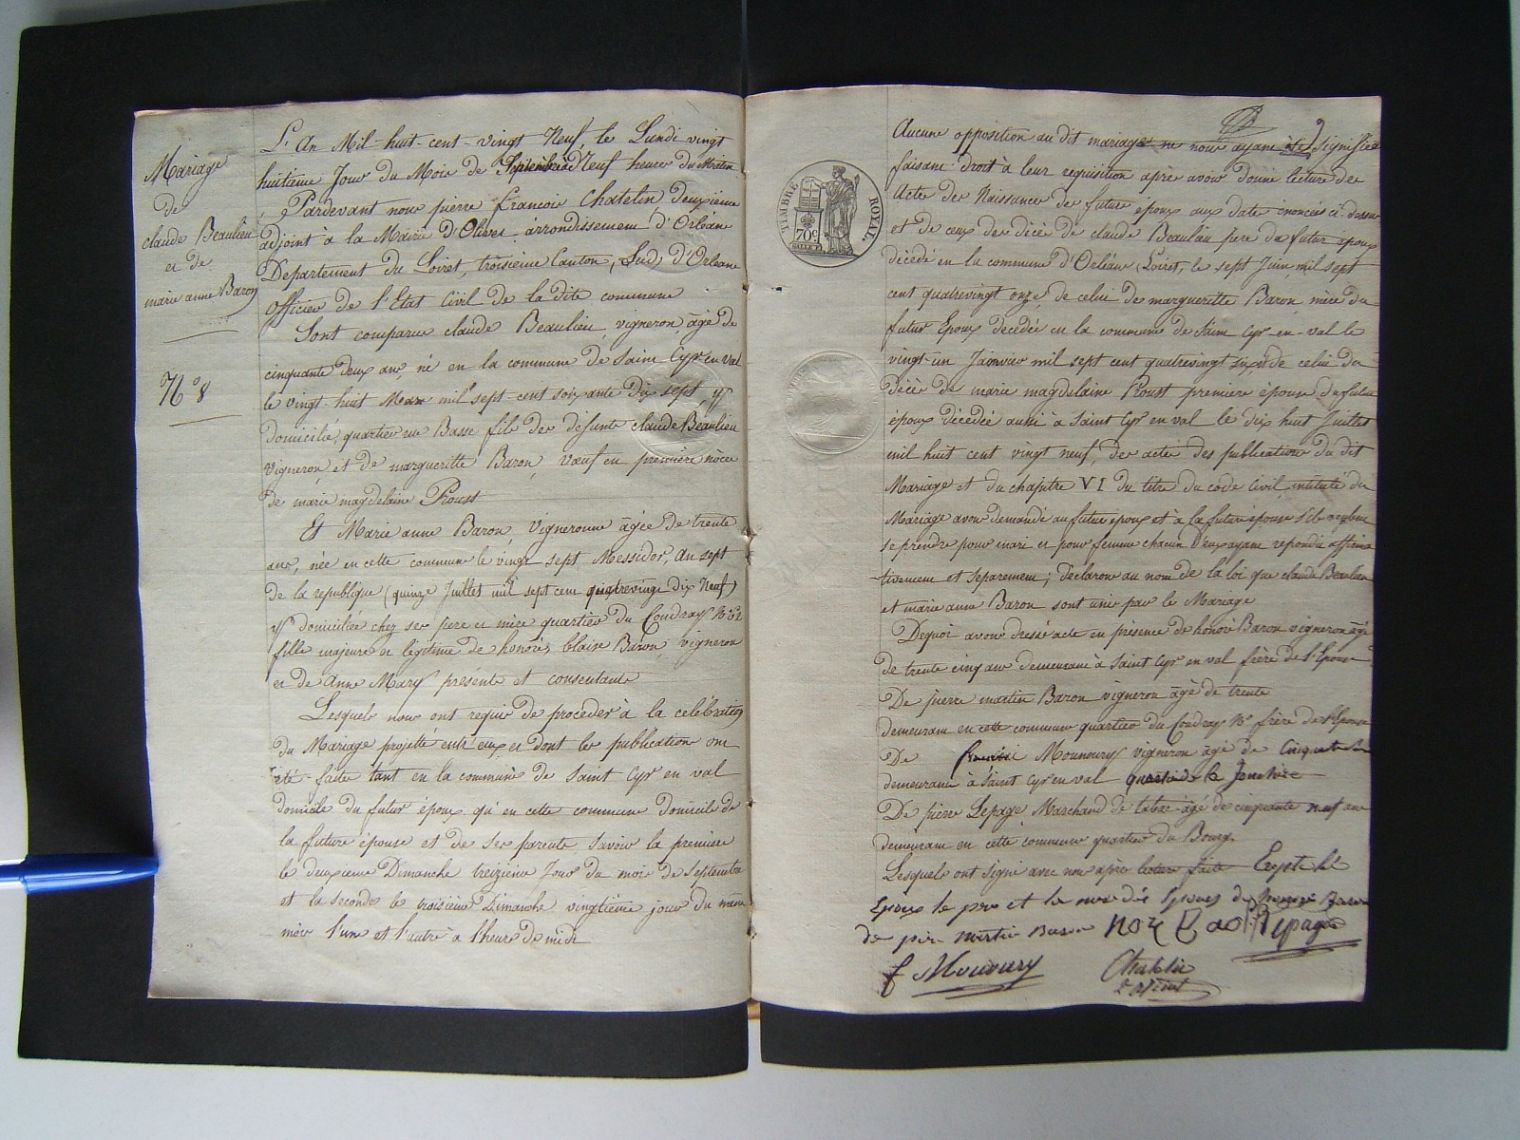 Mariage
de
claude Beaulieu
et de
marie anne Baron
N° 8
L'An Mil-huit-cent-vingt Neuf, le Lundi vingt
huitieme Jour du Mois de Septembre à Neuf heures du Matin
Pardevant nous pierre francois Chatelin Deuxieme
adjoint à la Mairie d'Olivet arrondissement d'Orléans
Departement du Loiret, troisieme Canton, Sud, d'Orleans
officier de l'Etat Civil de la dite commune
Sont comparus claude Beaulieu vigneron âgé de
cinquante deux ans, né en la commune de Saint Cyr en val
le vingt-huit Mars mil sept-cent soixante dix sept, y
domicilié, quartier rue Basse fils des defunts claude Beaulieu
vigneron, et de margueritte Baron, vœuf en premiere nôce
de marie magdelaine Proust
Et Marie anne Baron, Vigneronne âgée de trente
ans, née en cette commune le vingt sept Messidor, An sept
de la republique (quinze Juillet mil sept cent quatrevingt dix Neuf)
y domiciliée chez ses pere et mere quartier du Coudray
fille majeure et légitime de honoré blaise Baron, vigneron
et de Anne Mary présents et consentants
Lesquels nous ont requis de proceder à la celébration
du Mariage projetté entr'eux et dont les publications ont
été faites tant en la commune de Saint Cyr en val
domicile du futur epoux qu'en cette commune domicile de
la future épouse et de ses parents savoir la premiere
le deuxieme Dimanche treizieme Jour du mois de Septembre
et la seconde le troisieme Dimanche vingtieme jour du même
mois l'une et l'autre à l'heure de midi
TIMBRE ROYAL
70c
Aucune opposition au dit mariage ne nous ayant été signifiée
faisant droit à leur requisition après avoir donné lecture des
Actes de Naissances des futurs époux aux dates énoncés ci-dessus
et de ceux des décès de claude Beaulieu pere du futur époux
décédé en la commune d'Orléans (Loiret, le sept Juin mil sept
cent quatrevingt onze, de celui de margueritte Baron, mère du
futur Epoux decédée en la commune de Saint Cyr-en-val le
vingt-un Janvier mil sept cent quatrevingt de celui du
décès de marie magdelaine Proust premiere épouse du futur
époux décédée aussi à Saint Cyr en val le dix huit Juillet
mil huit cent vingt neuf, des actes des publications du dit
Mariage et du chapitre VI du titre du code Civil intitulé du
Mariage avons demandé au futur epoux et à la future épouse s'ils veulent
se prendre pour mari et pour femme chacun d'eux ayant repondu affirma
tivement et séparement; déclarons au nom de la loi que claude Beaulieu
et marie anne Baron sont unis par le Mariage
Dequoi avons dressé acte en présence de honoré Baron vigneron âgé
de trente cinq ans demeurant à Saint Cyr en val frère de l'Epouse
De pierre martin Baron vigneron âgé de trente
demeurant en cette commune quartier du Coudray frère de l'Epouse
De francois Mounoury vigneron âgé de Cinquante
demeurant à Saint Cyr en val quartier de la
De pierre Lepage Marchand de tabac âgé de cinquante neuf ans
demeurant en cette commune quartier du Bourg
Lesquels ont signé avec nous après lecture faite Excepté les
Epoux le pere et la mere des Epoux de Baron
de pierre martin Baron Lepage
f Mounoury Chatelin